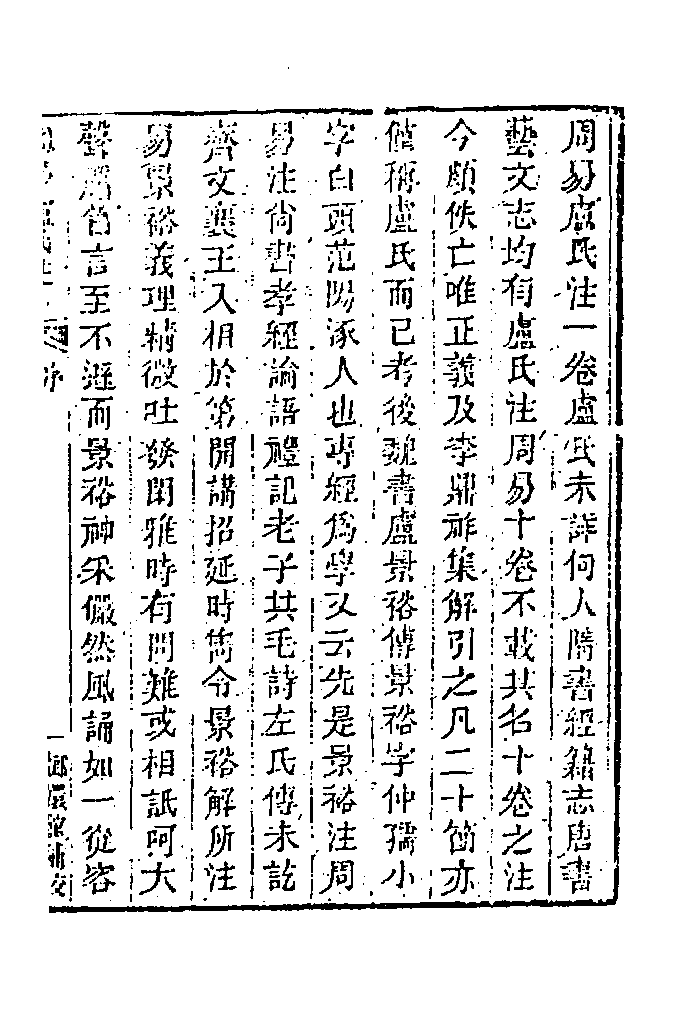 周易盧氏注一卷盧氏未詳何人隋書經籍志唐書
藝文志均有盧氏注周易十卷不載其名十卷之注
今頗佚亡唯正義及李鼎祚集解引之凡二十節亦
僅稱盧氏而已考後魏書盧景裕傳景裕字仲孺小
字白頭范陽涿人也專經爲學又云先是景裕注周
易注尚書孝經論語禮記老子其毛詩左氏傳未訖
齊文襄王入相於第開講招延時雋令景裕解所注
易景裕義理精微吐發閑雅時有問難或相詆呵大
聲厲色言至不遜而景裕神采儼然風誦如一從容
周易盧氏注 序
嫏嬛館補校